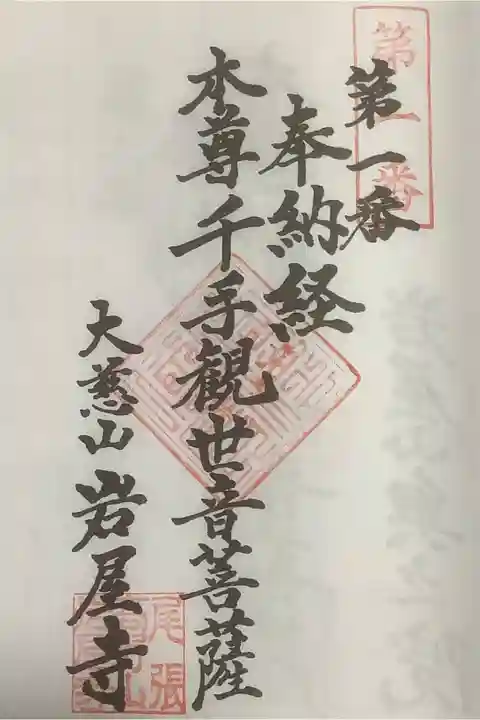 第一番
第一番
奉納経
本尊千手観世音菩薩
大慈山岩屋寺
尾張